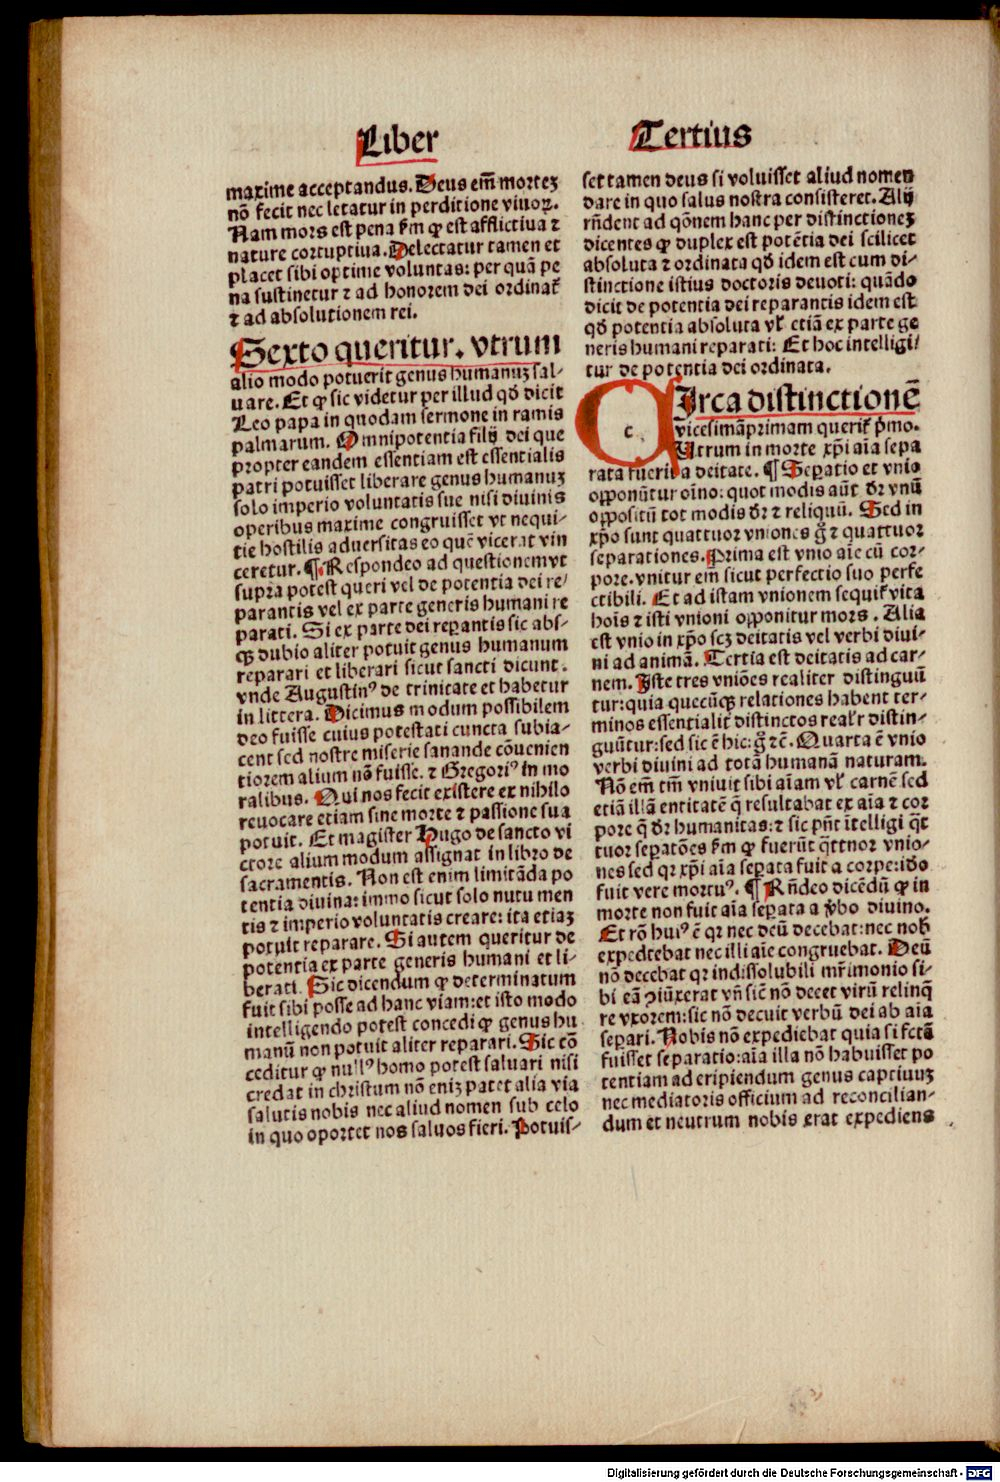 Liber
Tertius
maxime acceptandus. Deus em̄ mortez
nō fecit nec letatur in perditione viuoꝝ.
Nam mors est pena ſm ꝙ est afflictiua ⁊
nature corruptiua. Delectatur tamen et
placet sibi optime voluntas: per quā pe
na sustinetur ⁊ ad honorem dei ordinat̄
⁊ ad absolutionem rei.
Sexto queritur. vtrum
alio modo potuerit genus humanuz sal-
uare. Et ꝙ sic videtur per illud qđ dicit
Leo papa in quodam sermone in ramis
palmarum. Omnipotentia filij dei que
propter eandem essentiam est essentialis
patri potuisset liberare genus humanuz
solo imperio voluntatis sue nisi diuinis
operibus maxime congruisset vt nequi-
tie hostilis aduersitas eo quē vicerat vin
ceretur. ¶ Respondeo ad questionem vt
supra potest queri vel de potentia dei re-
parantis vel ex parte generis humani re
parati. Si ex parte dei reꝑantis sic abs-
ꝙ dubio aliter potuit genus humanum
reparari et liberari sicut sancti dicunt.
vnde Augustinꝰ de trinitate et habetur
in littera. Dicimus modum possibilem
deo fuisse cuius potestati cuncta subia-
cent sed nostre miserie sanande cōuenien
tiorem alium nō fuisse. ⁊ Gregoriꝰ in mo
ralibus. Qui nos fecit existere ex nihilo
reuocare etiam sine morte ⁊ passione sua
potuit. Et magister Hugo de sancto vi
ctore alium modum assignat in libro de
sacramentis. Non est enim limitāda po
tentia diuina: immo sicut solo nutu men
tis ⁊ imperio voluntatis creare: ita etiaz
potuit reparare. Si autem queritur de
potentia ex parte generis humani et li-
berati. Sic dicendum ꝙ determinatum
fuit sibi posse ad hanc viam: et isto modo
intelligendo potest concedi ꝙ genus hu
manū non potuit aliter reparari. Sic cō
ceditur ꝙ nullꝰ homo potest saluari nisi
credat in christum nō eniz patet alia via
salutis nobis nec aliud nomen sub celo
in quo oportet nos saluos fieri. Potuis-
set tamen deus si voluisset aliud nomen
dare in quo salus nostra consisteret. Alij
rn̄dent ad qōnem hanc per distinctionez
dicentes ꝙ duplex est potētia dei scilicet
absoluta ⁊ ordinata qđ idem est cum di-
stinctione istius doctoris deuoti: quādo
dicit de potentia dei reparantis idem est
qđ potentia absoluta vł etiā ex parte ge
neris humani reparati: Et hoc intelligi-
tur de potentia dei ordinata.
CIrca distinctionē
vicesimāprimam querit̄ pͥmo.
Utrum in morte xp̄i aīa sepa
rata fuerit a deitate. ¶ Seꝑatio et vnio
opponūtur oīno: quot modis aūt dr̄ vnū
oppositū tot modis dr̄ ⁊ reliquū. Sed in
xp̄o sunt quattuor vniones g̊ ⁊ quattuor
separationes. Prima est vnio aīe cū cor-
pore. vnitur em̄ sicut perfectio suo perfe
ctibili. Et ad istam vnionem sequit̄ vita
hois ⁊ isti vnioni opponitur mors. Alia
est vnio in xp̄o scz deitatis vel verbi diui-
ni ad animā. Tertia est deitatis ad car-
nem. Iste tres vniōes realiter distinguū
tur: quia quecūqꝫ relationes habent ter-
minos essentialit̄ distinctos realr̄ distin-
guūtur: sed sic ē hic: g̊ ⁊c̄. Quarta ē vnio
verbi diuini ad totā humanā naturam.
Nō em̄ tm̄ vniuit sibi aīam vł carnē sed
etiā illā entitatē q̄ resultabat ex aīa ⁊ cor
pore q̄ dr̄ humanitas: ⁊ sic pn̄t ītelligi q̄t
tuor seꝑatōes ſm ꝙ fuerūt q̄ttuor vnio-
nes sed qꝛ xp̄i aīa seꝑata fuit a corpe: iđo
fuit vere mortuꝰ. ¶ Rn̄deo dicēdū ꝙ in
morte non fuit aīa seꝑata a v̄bo diuino.
Et rō huiꝰ ē qꝛ nec deū decebat: nec nob̄
expedcebat nec illi aīe congruebat. Deū
nō decebat qꝛ indissolubili mr̄imonio si-
bi eā ↄiūxerat vn̄ sic̄ nō decet virū relinq̄
re vxorem: sic nō decuit verbū dei ab aīa
seꝑari. Nobis nō expediebat quia si fctā
fuisset separatio: aīa illa nō habuisset po
tentiam ad eripiendum genus captiuuz
nec mediatoris officium ad reconcilian-
dum et neutrum nobis erat expediens
Digitalisierung gefördert durch die Deutsche Forschungsgemeinschaft - DFG